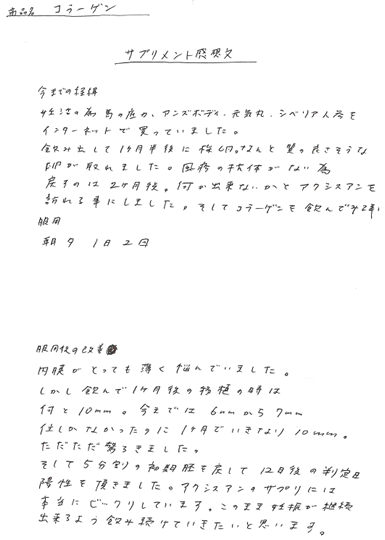 商品名 コラーゲン
サプリメント感想文
今までの経緯
妊活の為馬の底力、アンズボディ、元気丸、シベリア人参を
インターネットで買っていました。
飲み出して1ヶ月半後に採卵、なんと質の良さそうな
卵が取れました。の抗体がない為
戻すのは2ヶ月後。何か出来ないかとアクシスアンを
訪れる事にしました。そしてコラーゲンを飲んでみる事に
服用
朝夕 1日2回
服用後の改善
内膜がとっても薄く悩んでいました。
しかし飲んで1ヶ月後の移植の時は
何と10mm。今までは6mmから7mm
位しかなかったのに1ヶ月でいきなり10mm。
ただただ驚ろきました。
そして5分割の初期胚を戻して12日後の判定日
陽性を頂きました。アクシスアンのサプリには
本当にビックリしています。このまま妊娠が継続
出来るよう飲み続けていきたいと思います。